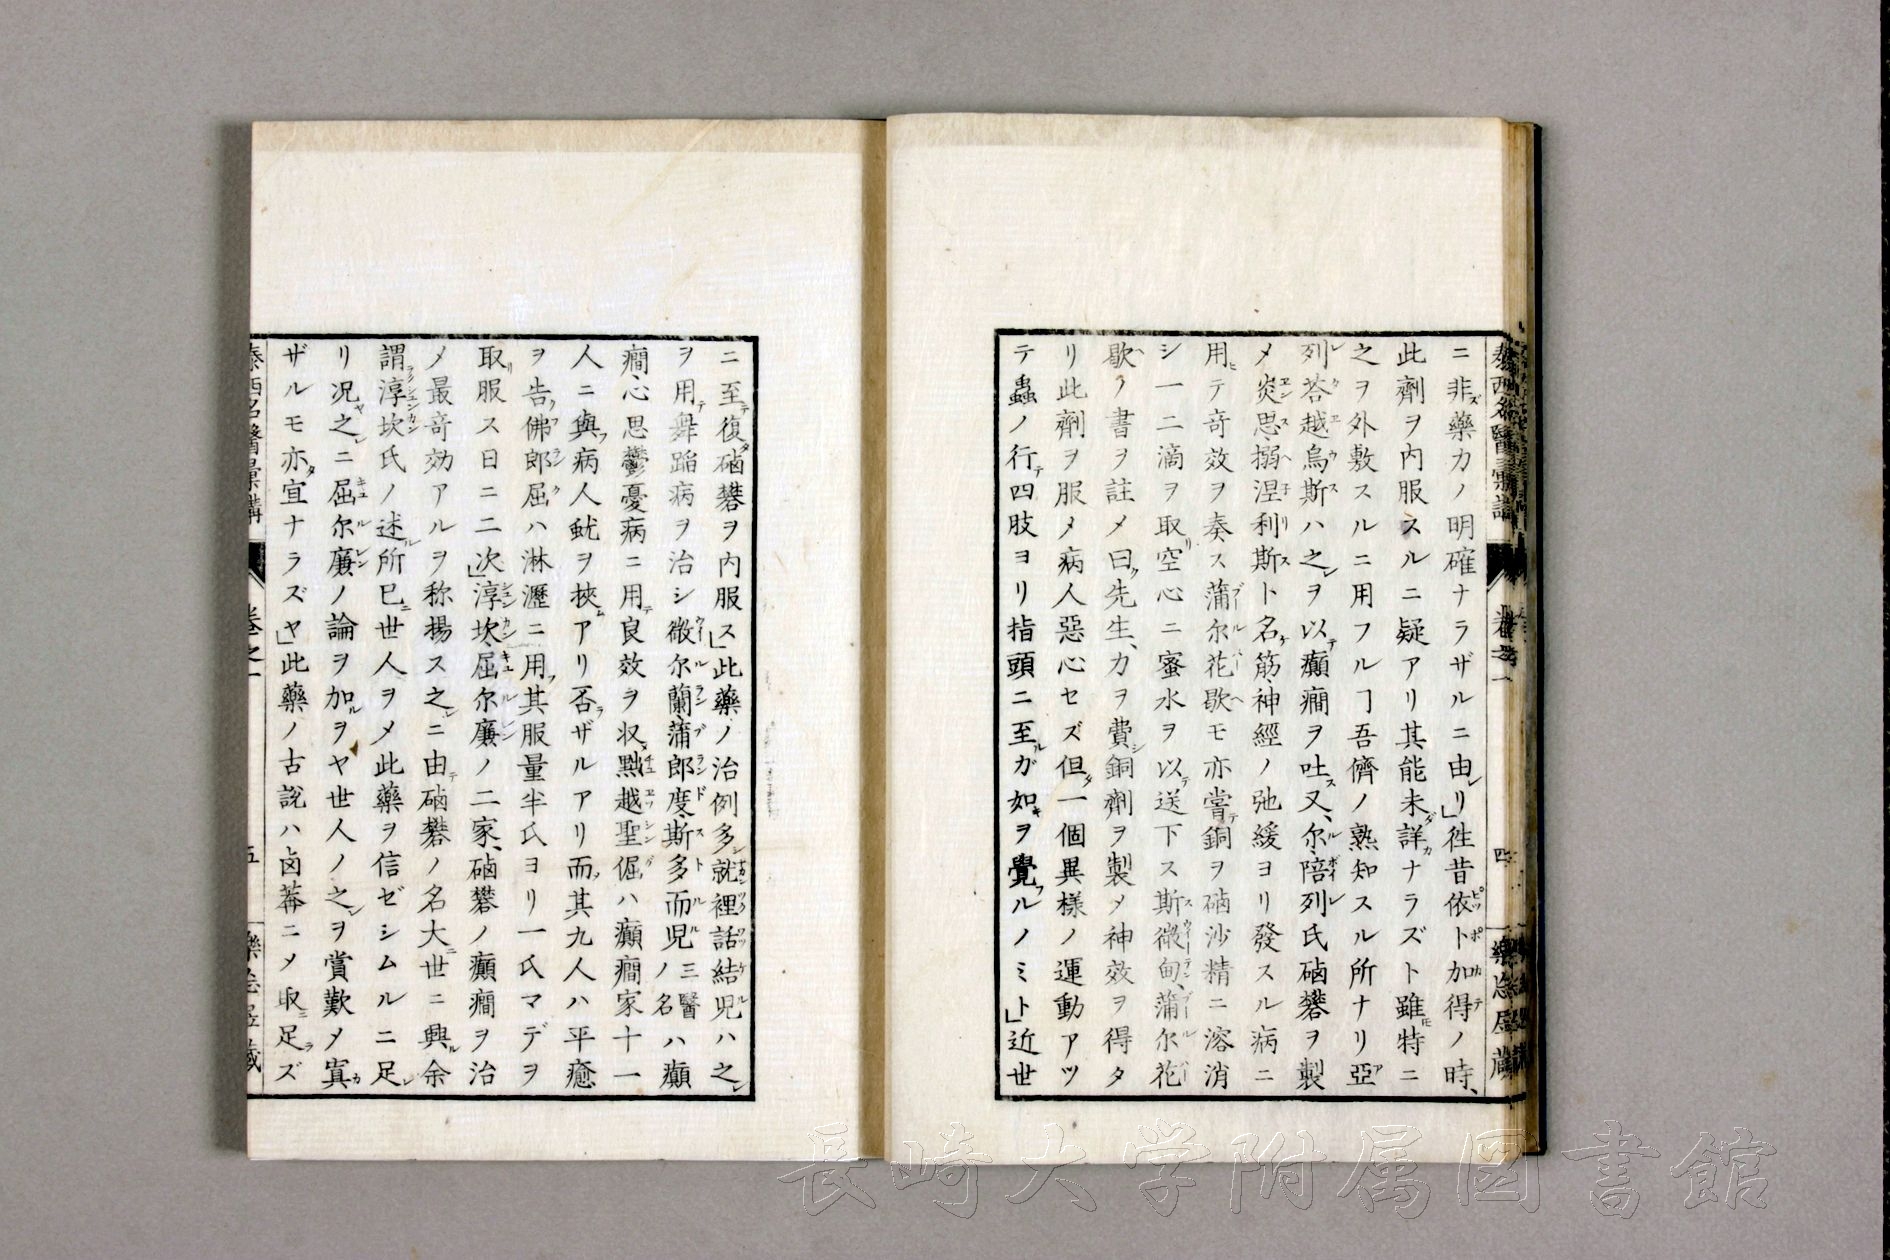 ニ非ズ藥力ノ明確ナラザルニ由レリ」徃昔依卜加得ノ時、
此劑ヲ内服スルニ疑アリ其能未ダ詳カナラズト雖ドモ特ニ
之ヲ外敷スルニ用フルヿ吾儕ノ熟知スル所ナリ亞
列荅越烏斯ハ之ヲ以テ癲癇ヲ吐ス又、尔陪列氏硇礬ヲ製
メ炎思搦涅利斯ト名ケ筋、神經ノ弛緩ヨリ發スル病ニ
用ヒテ竒效ヲ奏ス蒲尔花歇モ亦嘗テ銅ヲ硇沙精ニ溶消
シ一二滴ヲ取リ空心ニ蜜水ヲ以テ送下ス斯微甸、蒲尔花
歇ノ書ヲ註メ曰ク先生、力ヲ費シ銅劑ヲ製メ神效ヲ得タ
リ此劑ヲ服メ病人惡心セズ但ダ一個異様ノ運動アツ
テ蟲ノ行テ四肢ヨリ指頭ニ至ルガ如キヲ覺フルノミト」近世
泰西名醫彙講 卷之一 四
ニ至テ復タ硇礬ヲ内服ス」此藥ノ治例多シ就裡話結児ハ之レ
ヲ用テ舞蹈病ヲ治シ微尔蘭、蒲郎度、斯多而児三醫ノ名ハ癲
癇、心思鬱憂病ニ用テ良效ヲ収メ㸃越聖倔ハ癲癇家十一
人ニ與フ病人蚘ヲ挾ムアリ否ラザルアリ而ヲ其九人ハ平癒
ヲ告フ佛郎屈ハ淋瀝ニ用フ其服量半氏ヨリ一氏マデヲ
取リ服ス日ニ二次」淳坎、屈尔廉ノ二家、硇礬ノ癲癇ヲ治
メ最竒効アルヲ称揚ス之レニ由テ硇礬ノ名大ニ世ニ興ル余
謂ラク淳坎氏ノ述ル所已ニ世人ヲメ此藥ヲ信ゼシムルニ足レ
リ况ヤ之レニ屈尔廉ノ論ヲ加ルヲヤ世人ノ之レヲ賞歎メ寘カ
ザルモ亦タ宜ナラズヤ」此藥ノ古説ハ鹵莾ニメ取ニ足ラズ
泰西名醫彙講 卷之一 五
長崎大学附属図書館